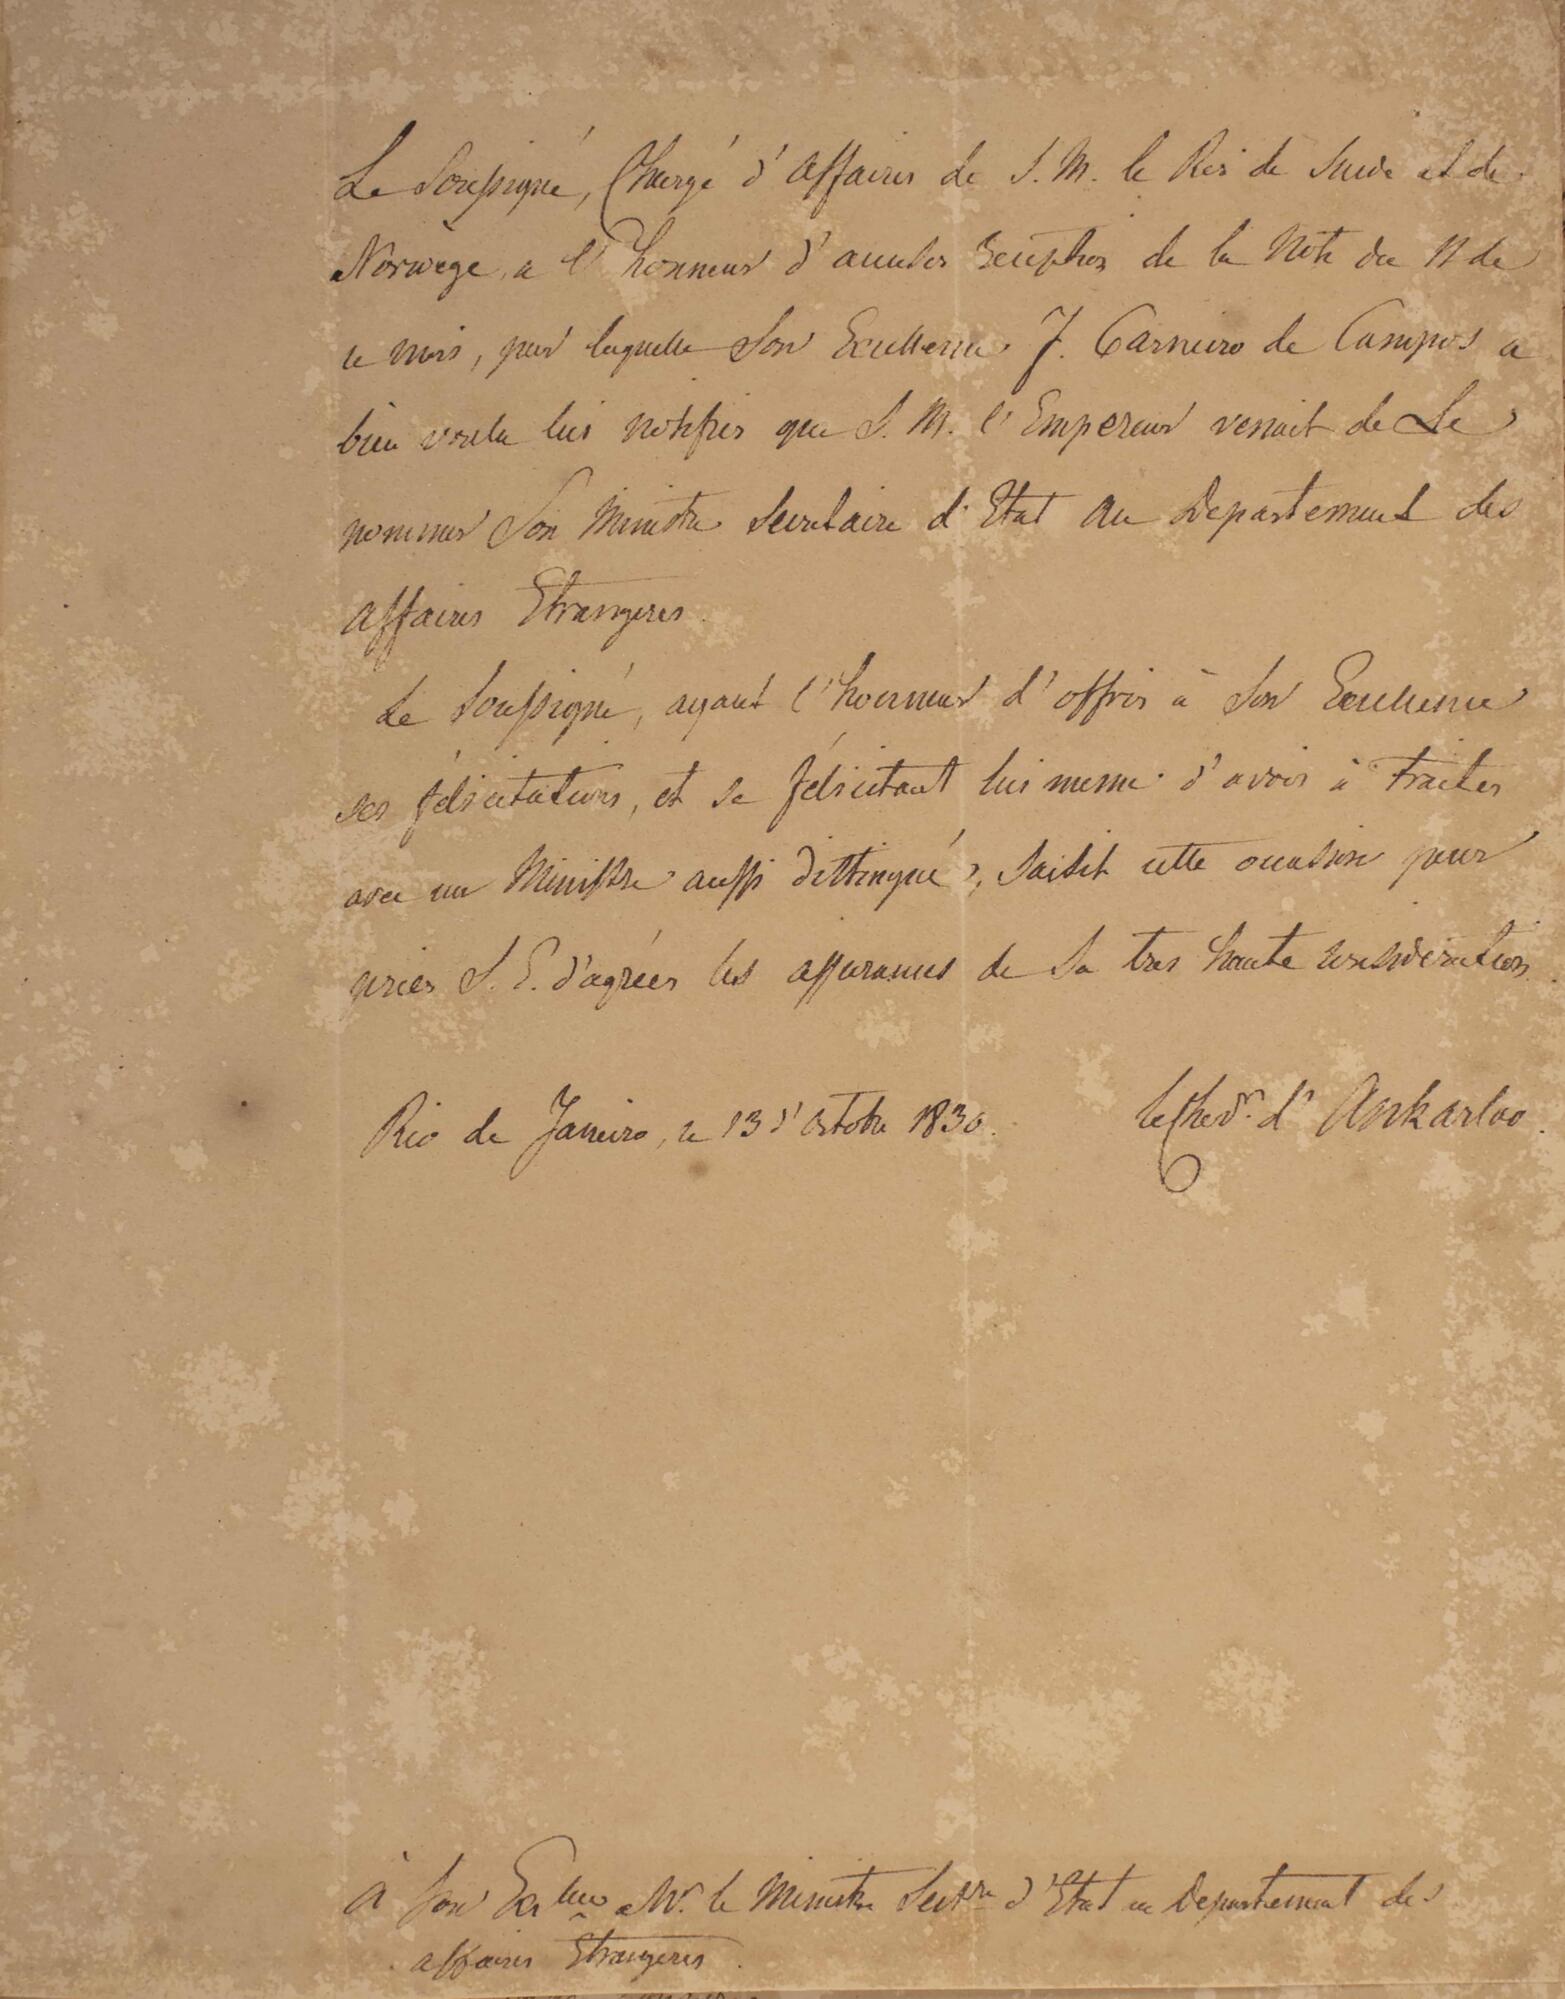 Le Soussigné, Chargé d'affaires de S. M. le Roi de Suède et de
Norwège, a l'honneur d'accuser reception de la Note du 11 de
ce mois, par laquelle Son Excellence J. Carneiro de Campos a
bien voulu lui notifier que S. M. l'Empereur venait de Le
nommer Son Ministre Secretaire d'Etat au Departement des
affaires Etrangeres.
Le Soussigné, ayant l'honneur d'offrir à Son Excellence
ses félicitations, et se félicitant lui meme d'avoir à traiter
avec un Ministre aussi distingué, saisit cette occasion pour
prier S. E. d'agréer les assurances de Sa tres haute consideration.
Rio de Janeiro, ce 13 d'Octobre 1830.
le Chevr. d'Ankarloo.
À Son Exllence Mr. le Ministre Secrtre d'Etat au Departement des
affaires Etrangeres.